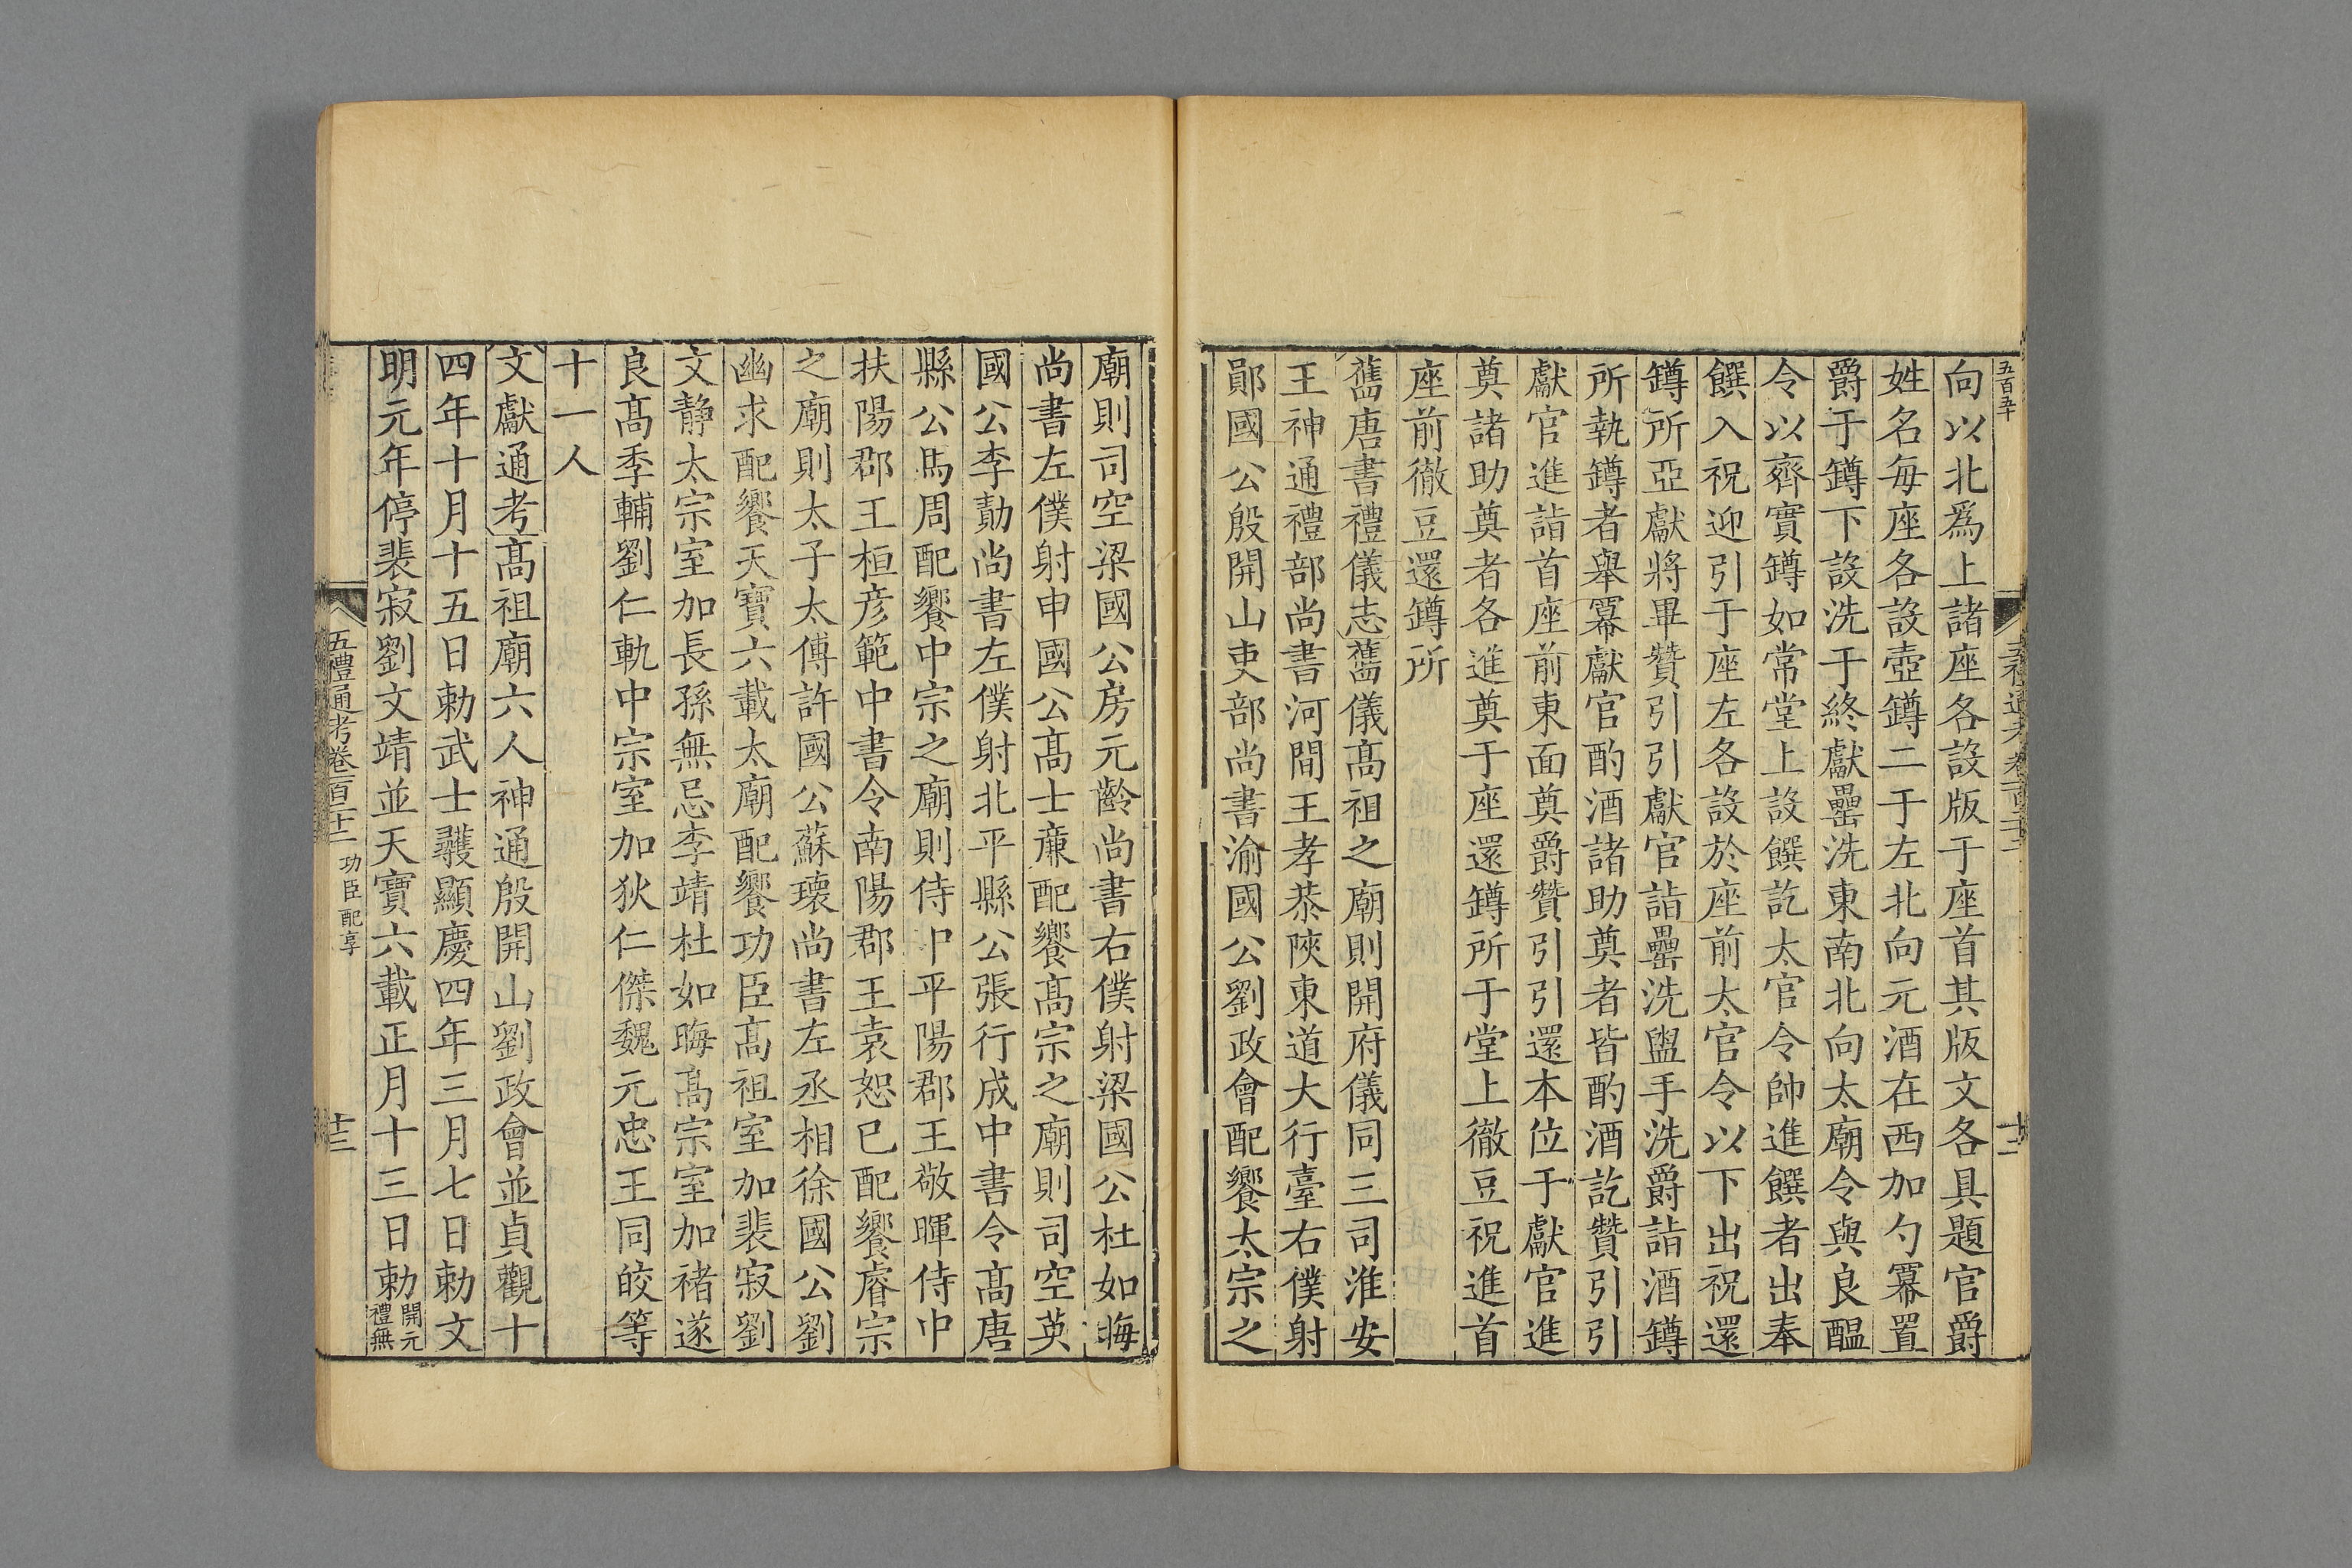 五百五十
向以北爲上諸座各設版于座首其版文各具題官爵
姓名每座各設壺罇二于左北向元酒在西加勺冪置
爵于罇下設洗于終獻罍洗東南北向太廟令與良醖
令以齊實罇如常堂上設饌訖太官令帥進饌者出奉
饌入祝迎引于座左各設於座前太官令以下出祝還
罇所亞獻將畢贊引引獻官詣罍洗盥手洗爵詣酒罇
所執罇者舉冪獻官酌酒諸助奠者皆酌酒訖贊引引
獻官進詣首座前東面奠爵贊引引還本位于獻官進
奠諸助奠者各進奠于座還罇所于堂上徹豆祝進首
座前徹豆還罇所
舊唐書禮儀志舊儀高祖之廟則開府儀同三司淮安
王神通禮部尚書河間王孝恭陝東道大行臺右僕射
鄖國公殷開山吏部尚書渝國公劉政會配饗太宗之
廟則司空梁國公房元齡尚書右僕射梁國公杜如晦
尚書左僕射申國公髙士亷配饗髙宗之廟則司空英
國公李勣尚書左僕射北平縣公張行成中書令髙唐
縣公馬周配饗中宗之廟則侍中平陽郡王敬暉侍中
扶陽郡王桓彦範中書令南陽郡王袁恕已配饗睿宗
之廟則太子太傅許國公蘇瓌尚書左丞相徐國公劉
幽求配饗天寶六載太廟配饗功臣髙祖室加裴寂劉
文靜太宗室加長孫無忌李靖杜如晦髙宗室加褚遂
良髙季輔劉仁軌中宗室加狄仁傑魏元忠王同皎等
十一人
文獻通考髙祖廟六人神通殷開山劉政會並貞觀十
四年十月十五日勅武士彠顯慶四年三月七日勅文
明元年停裴寂劉文靖並天寶六載正月十三日勅開元禮無
五禮通考卷一百二十二 功臣配享 十三